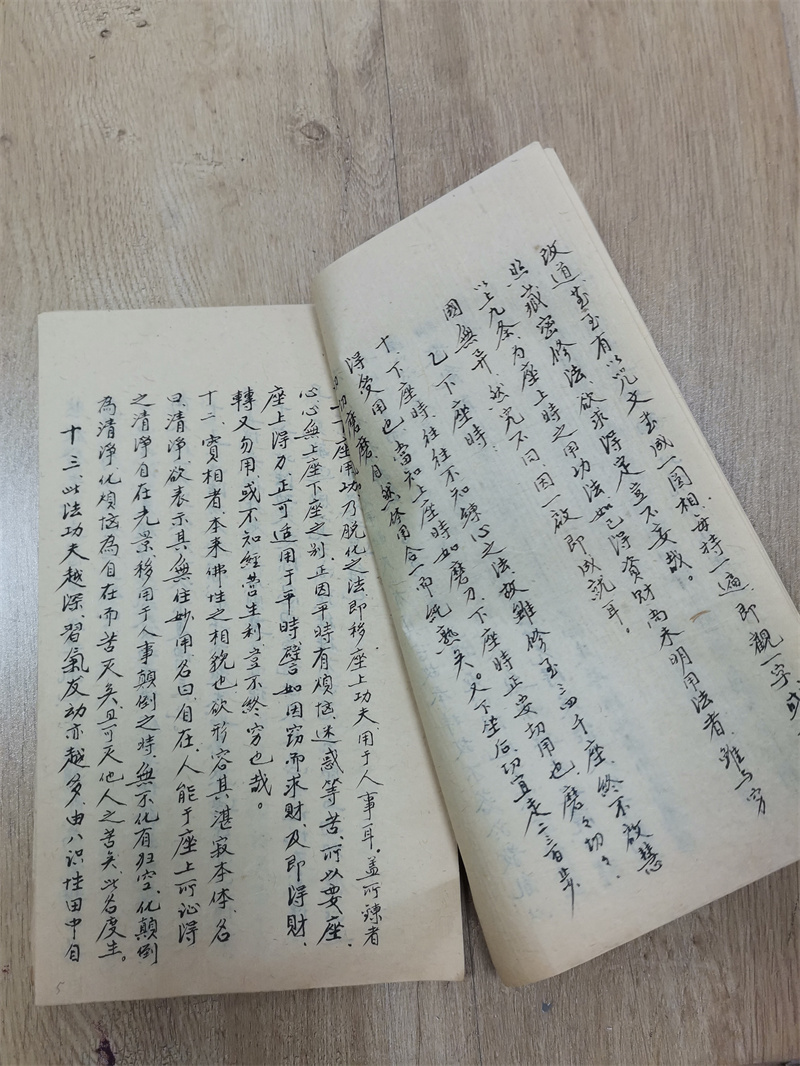 改道甚至有以咒文書成一圓相每持一遍即觀一字
照藏密修法欲求得定豈不妄哉。
以上九条為座上時之用功法如已得資財尚未明用法者雖与穷
國無异然究不同因一啟即成就耳。
乙下座時
十、下座時往往不知鍊心之法故雖修至三四千座終不啟慧
得受用也當知上座時如磨刀下座時正要切用也磨々切々
切切磨磨自然体用合一而純熟矣。又下坐后切宜走二三百步。
下座用功乃脱化之法即移座上功夫用于人事耳。盖所鍊者
心心無上座下座之别正因平時有煩惱迷惑等苦所以要座
座上得力正可适用于平時譬如因窃而求財及即得財
轉又勿用或不知經营生利豈不終穷也哉。
十二、實相者本来佛性之相貌也欲形容其湛寂本体名
曰清淨欲表示其無住妙用名曰自在人能于座上所証得
之清淨自在光景移用于人事颠倒之時無不化有归空化颠倒
為清淨化煩惱為自在而苦灭矣且可灭他人之苦矣此名度生。
十三、此法功夫越深習氣发动亦越多由八识性田中自
5